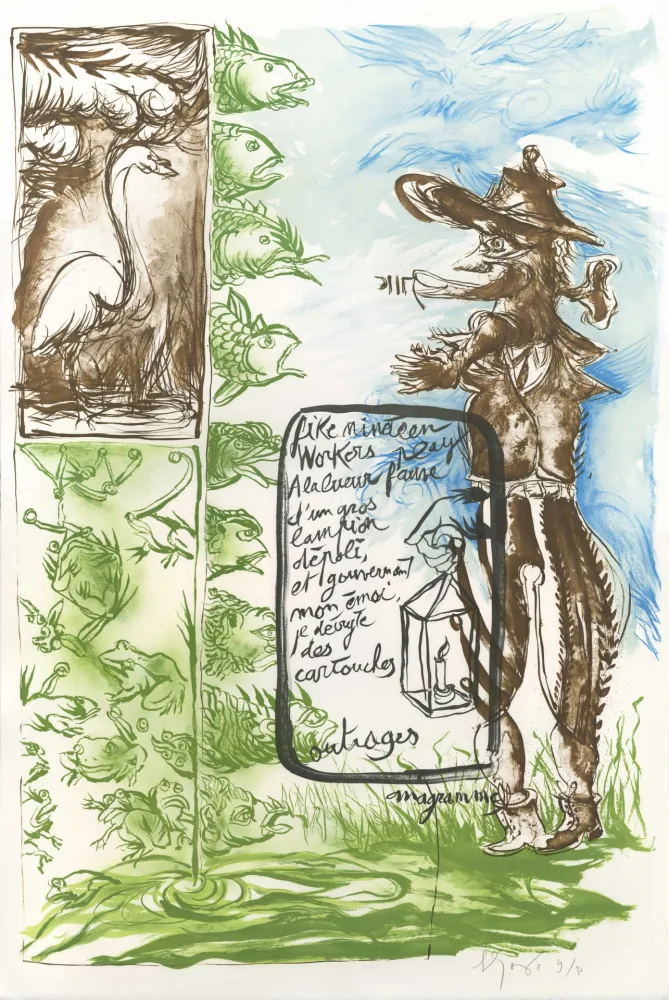 like minoean
Workers play
A la lueur fauve
d'un gros
lampion
dépoli,
et gouvernant
mon émoi,
je décrypte
des
cartouches
outrages
anagramme